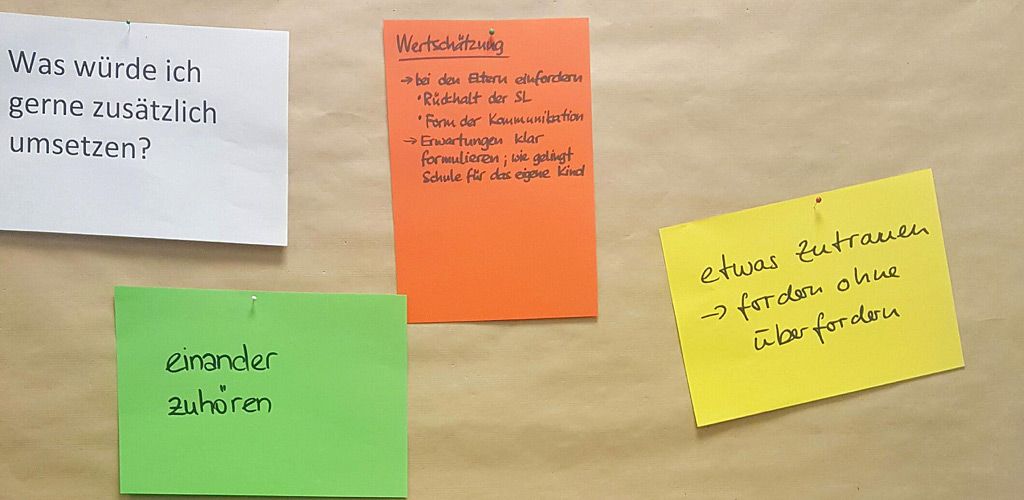 Was würde ich
gerne zusätzlich
umsetzen?
Wertschätzung
→ bei den Eltern einfordern
• Rückhalt der SL
• Form der Kommunikation
→ Erwartungen klar
formulieren; wie gelingt
Schule für das eigene Kind
etwas zutrauen
→ fordern ohne
überfordern
einander
zuhören